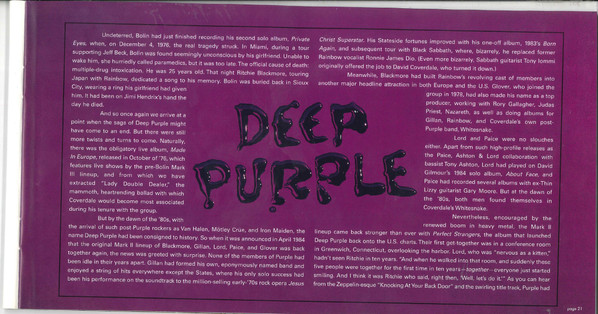 Undeterred, Bolin had just finished recording his second solo album, Private
Eyes, when, on December 4, 1976, the real tragedy struck. In Miami, during a tour
supporting Jeff Beck, Bolin was found seemingly unconscious by his girlfriend. Unable to
wake him, she hurriedly called paramedics, but it was too late. The official cause of death:
multiple-drug intoxication. He was 25 years old. That night Ritchie Blackmore, touring
Japan with Rainbow, dedicated a song to his memory. Bolin was buried back in Sioux
City, wearing a ring his girlfriend had given
him. It had been on Jimi Hendrix's hand the
day he died.
And so once again we arrive at a
point when the saga of Deep Purple might
have come to an end. But there were still
more twists and turns to come. Naturally,
there was the obligatory live album, Made
In Europe, released in October of '76, which
features live shows by the pre-Bolin Mark
III lineup, and from which we have
extracted "Lady Double Dealer," the
mammoth, heartrending ballad with which
Coverdale would become most associated
during his tenure with the group.
But by the dawn of the '80s, with
the arrival of such post Purple rockers as Van Halen, Mötley Crüe, and Iron Maiden, the
name Deep Purple had been consigned to history. So when it was announced in April 1984
that the original Mark II lineup of Blackmore, Gillan, Lord, Paice, and Glover was back
together again, the news was greeted with surprise. None of the members of Purple had
been idle in their years apart. Gillan had formed his own, eponymously named band and
enjoyed a string of hits everywhere except the States, where his only solo success had
been his performance on the soundtrack to the million-selling early-'70s rock opera Jesus
DEEP
PURPLE
Christ Superstar. His Stateside fortunes improved with his one-off album, 1983's Born
Again, and subsequent tour with Black Sabbath, where, bizarrely, he replaced former
Rainbow vocalist Ronnie James Dio. (Even more bizarrely, Sabbath guitarist Tony Iommi
originally offered the job to David Coverdale, who turned it down.)
Meanwhile, Blackmore had built Rainbow's revolving cast of members into
another major headline attraction in both Europe and the U.S. Glover, who joined the
group in 1979, had also made his name as a top
producer, working with Rory Gallagher, Judas
Priest, Nazareth, as well as doing albums for
Gillan, Rainbow, and Coverdale's own post-
Purple band, Whitesnake.
Lord and Paice were no slouches
either. Apart from such high-profile releases as
the Paice, Ashton & Lord collaboration with
bassist Tony Ashton, Lord had played on David
Gilmour's 1984 solo album, About Face, and
Paice had recorded several albums with ex-Thin
Lizzy guitarist Gary Moore. But at the dawn of
the '80s, both men found themselves in
Coverdale's Whitesnake.
Nevertheless, encouraged by the
renewed boom in heavy metal, the Mark II
lineup came back stronger than ever with Perfect Strangers, the album that launched
Deep Purple back onto the U.S. charts. Their first get-together was in a conference room
in Greenwich, Connecticut, overlooking the harbor. Lord, who was "nervous as a kitten,"
hadn't seen Ritchie in ten years. "And when he walked into that room, and suddenly these
five people were together for the first time in ten years – together – everyone just started
smiling. And I think it was Ritchie who said, right then, 'Well, let's do it!'" As you can hear
from the Zeppelin-esque "Knocking At Your Back Door" and the swirling title track, Purple had
page 21